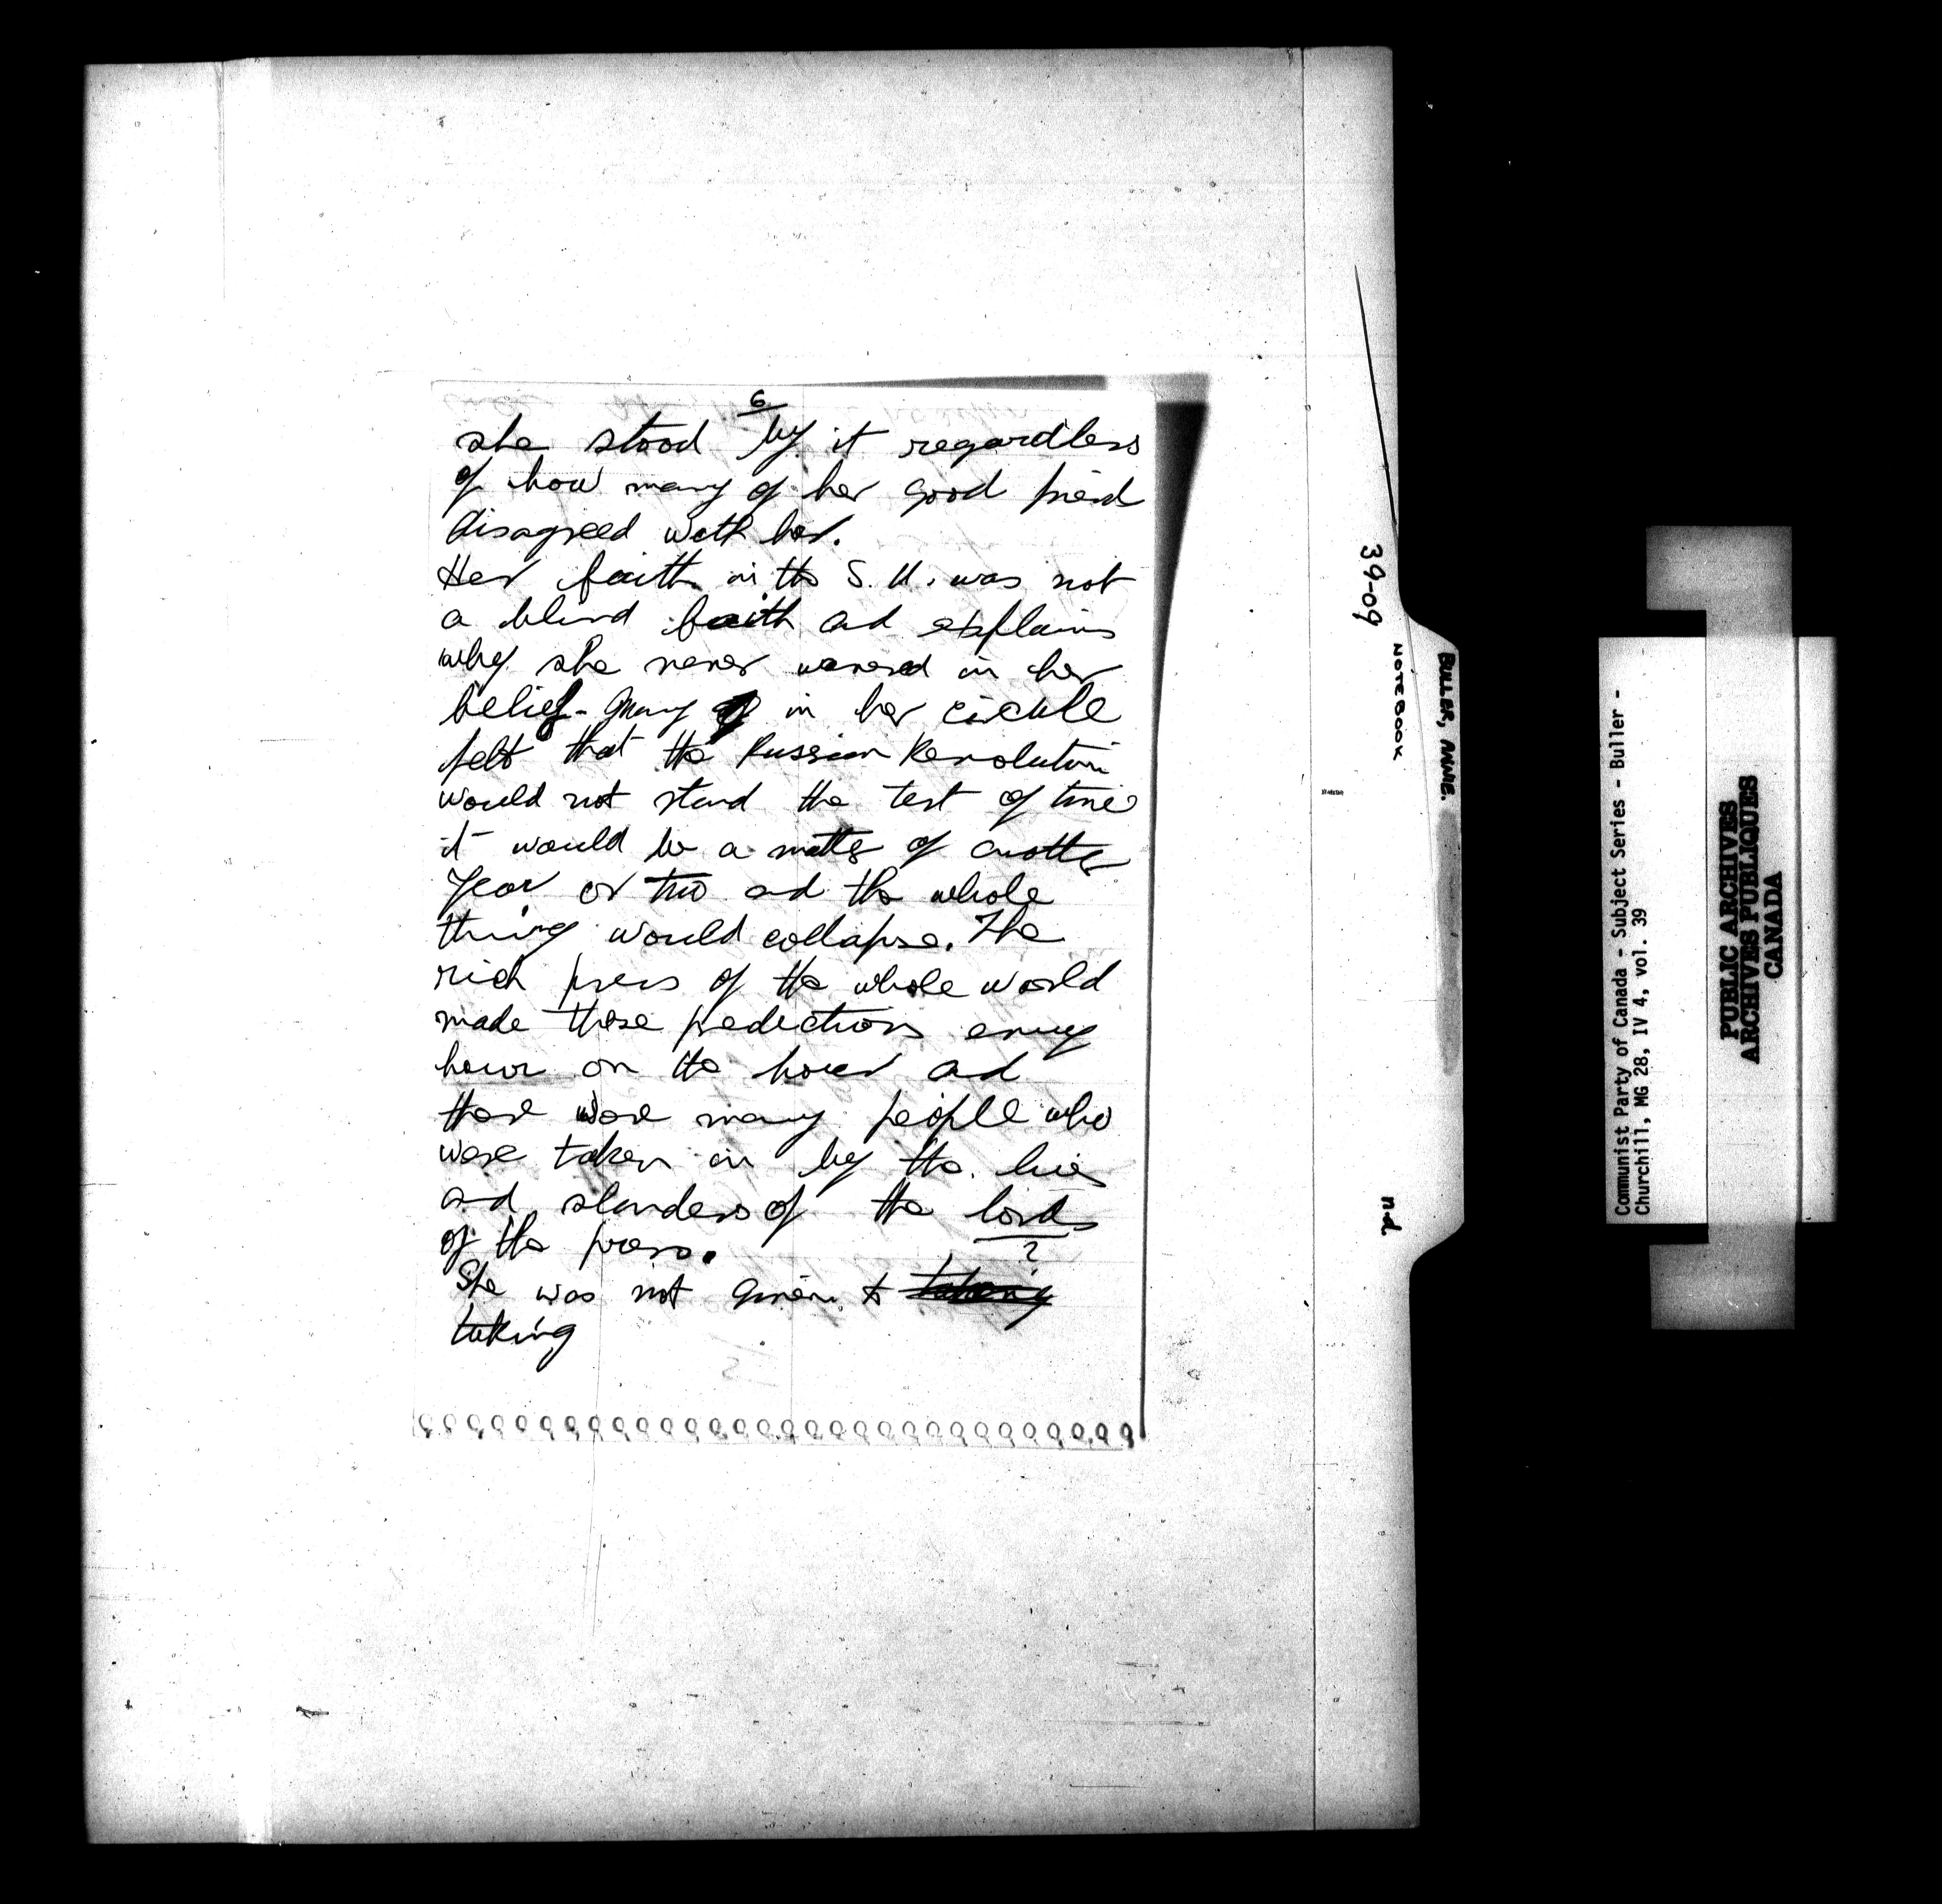 6
she stood by it regardless
of how many of her good friend
disagreed with her.
Her faith in the S. U. was not
a blind faith and explains
why she never wavered in her
belief - Many in her circule
felt that the Russian Revolution
would not stand the test of time
it would be a matter of another
year or two and the whole
thing would collapse. The
rich press of the whole world
made those predections every
hour on the hour and
there were many people who
were taken in by the lies
and slanders of the lords
of the press.
?
She was not given to taking
taking
39-09
NOTEBOOK
BULLER, ANNIE.
n.d.
Communist Party of Canada - Subject Series - Buller -
Churchill, MG 28, IV 4, vol. 39
PUBLIC ARCHIVES
ARCHIVES PUBLIQUES
CANADA